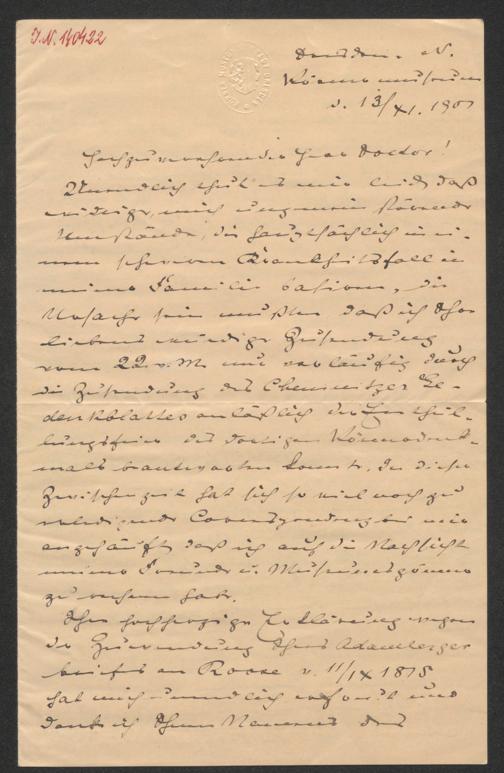 J.N. 140422
Dresden. N.
Körnermuseum
d. 13/XI. 1901
Hochzuverehrender Herr Doctor!
Unendlich thut es mir leid, daß
widrige, mich ungemein störende
Umstände, die hauptsächlich in ei-
nem schweren Krankheitsfall in
meiner Familie basiren, die
Ursache sein mußten daß ich Ihre
liebenswürdige Zusendung
vom 22. v. M. nur vorläufig durch
die Zusendung des Chemnitzer Ge-
denkblattes anläßlich der Enthül-
lungsfeier des dortigen Körnerdenk-
mals beantworten konnte. In dieser
Zwischenzeit hat sich so viel noch zu
erledigende Correspondenz bei mir
angehäuft, daß ich auf die Nachsicht
meiner Freunde u. Museumsgönner
zu rechnen habe.
Ihre hochherzige Erklärung wegen
der Zuwendung Ihres Adamberger
briefs an Roose v. 11/IX 1815
hat mich unendlich erfreut und
danke ich Ihnen Namens des